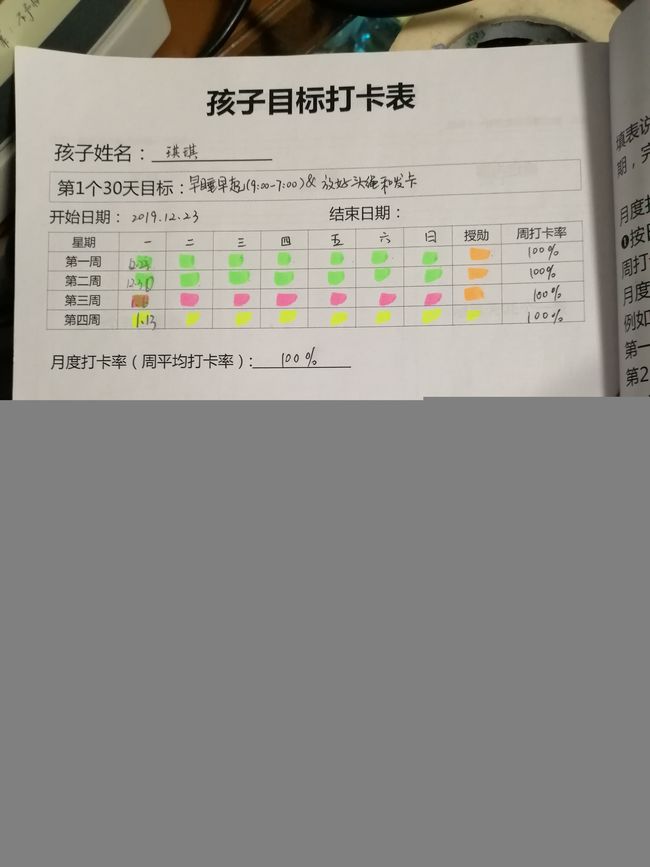 孩子目标打卡表
孩子姓名：琪琪
第1个30天目标：早睡早起(9:00-7:00)&放好头绳和发卡
开始日期：2019.12.23 结束日期：
星期 一 二 三 四 五 六 日 授勋 周打卡率
第一周 12.23 100%
第二周 12.30 100%
第三周 100%
第四周 1.13 100%
月度打卡率（周平均打卡率）：100%
填表说
期，完
月度打
❶按日
周打卡
月度
例如
第一
第2